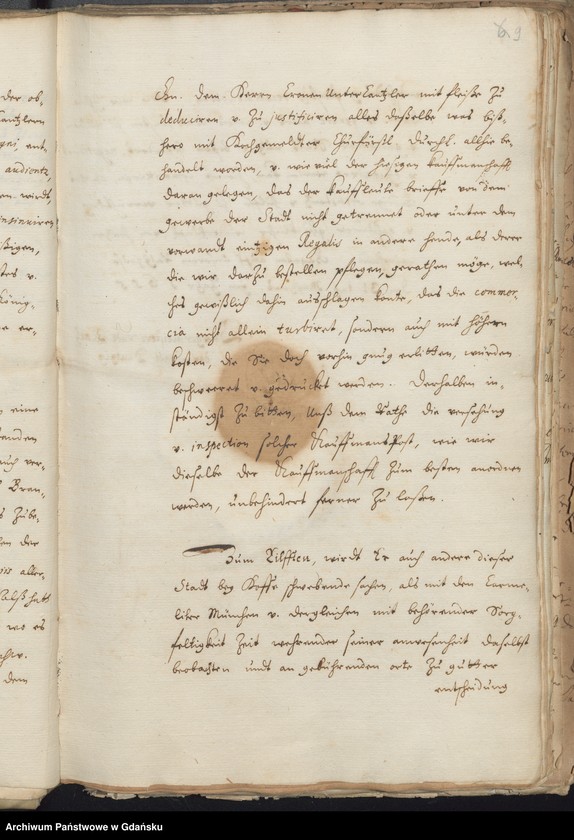 9
dem Herrn Cronen UnterCantzler mit fleiße zu
deduciren v. zu justificiren alles daßelbe was biß-
hero mit Hochgemeldter Churfürstl. Durchl. allhie be-
handelt worden, v. wie viel der hiesigen Kauffmanschafft
daran gelegen, das der Kauffleute brieffe von dem
gewerbe der Stadt nicht getrennet oder unter dem
vorwandt einzigen Regalis in andere hende, als derer
die wir darzu bestellen pflegen, gerathen möge, wel-
ches gewißlich dahin ausschlagen könte, das die commer-
cia nicht allein turbiret, sondern auch mit höhern
kosten, die Sie doch vorhin gnug erlitten, würden
beschweeret v. gedrücket werden. Derhalben in-
ständigst zu bitten, Unß dem Rathe die versehung
v. inspection solcher Kauffmans Post, wie wir
dieselbe der Kauffmanschafft zum besten anordnen
werden, unbehindert ferner zu laßen.
Zum Eilfften, wird Er auch andere dieser
Stadt bey Hoffe schwebende sachen, als mit den Carme-
liter München v. dergleichen mit behörender Sorg-
feltigkeit Zeit wehrender seiner anwesenheit daselbst
beobachten undt an gebührenden orte zu gutter
entscheidung
Archiwum Państwowe w Gdańsku